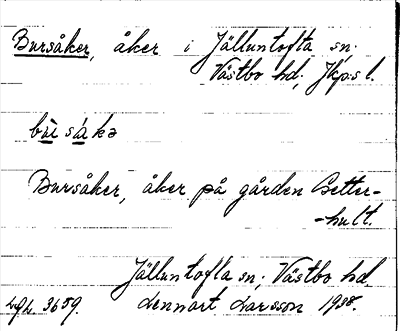 Bursåker, åker i Jälluntofta sn.
Västbo hd, Jkps l.
bùr såkə
Bursåker, åker på gården Setter-
-hult.
Jälluntofta sn; Västbo hd.
Lgh. 3659. Lennart Larsson 1938.